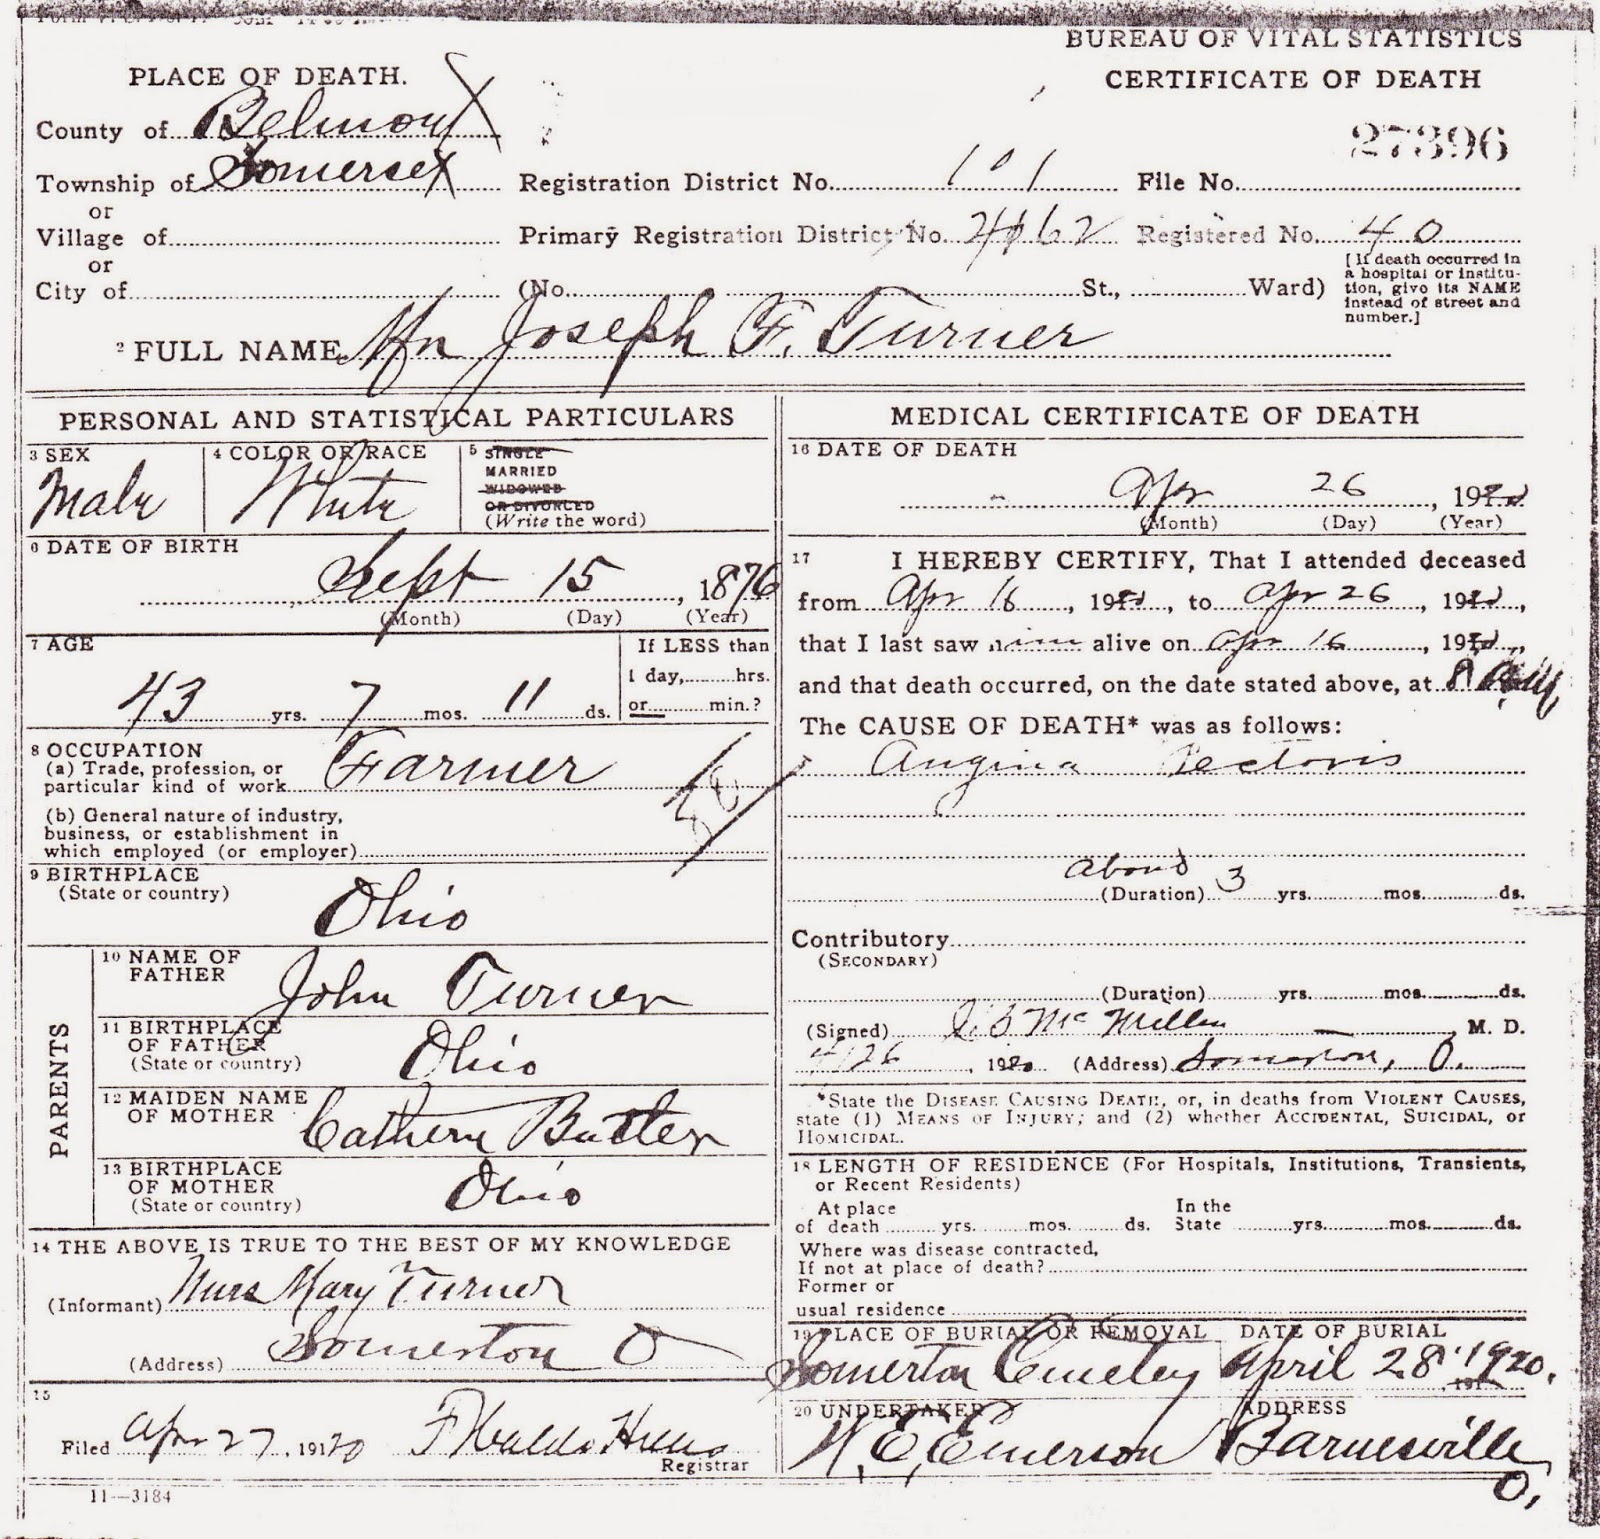 BUREAU OF VITAL STATISTICS
PLACE OF DEATH.
CERTIFICATE OF DEATH
County of Belmont
27396
Township of Somerset Registration District No. 101 File No.
or
Village of Primary Registration District No. 4162 Registered No. 40
or
City of (No. St., Ward)
[If death occurred in
a hospital or institu-
tion, give its NAME
instead of street and
number.]
2 FULL NAME Mr Joseph F. Turner
PERSONAL AND STATISTICAL PARTICULARS
3 SEX
Male
4 COLOR OR RACE
White
5 SINGLE
MARRIED
WIDOWED
OR DIVORCED
(Write the word)
6 DATE OF BIRTH
Sept 15, 1876
(Month) (Day) (Year)
7 AGE
43 yrs. 7 mos. 11 ds.
If LESS than
1 day, hrs.
or min.?
8 OCCUPATION
(a) Trade, profession, or
particular kind of work Farmer
(b) General nature of industry,
business, or establishment in
which employed (or employer)
9 BIRTHPLACE
(State or country)
Ohio
PARENTS
10 NAME OF
FATHER
John Turner
11 BIRTHPLACE
OF FATHER
(State or country) Ohio
12 MAIDEN NAME
OF MOTHER Cathern Butler
13 BIRTHPLACE
OF MOTHER
(State or country) Ohio
14 THE ABOVE IS TRUE TO THE BEST OF MY KNOWLEDGE
(Informant) Mrs Mary Turner
(Address) Somerton O
15
Filed Apr 27, 1920
Registrar
11—3184
MEDICAL CERTIFICATE OF DEATH
16 DATE OF DEATH
Apr 26, 1920
(Month) (Day) (Year)
17 I HEREBY CERTIFY, That I attended deceased
from Apr 16, 1920, to Apr 26, 1920,
that I last saw him alive on Apr 16, 1920,
and that death occurred, on the date stated above, at 8 A.M.
The CAUSE OF DEATH* was as follows:
Angina Pectoris
about
(Duration) 3 yrs. mos. ds.
Contributory
(SECONDARY)
(Duration) yrs. mos. ds.
(Signed) McMillen, M. D.
4/26, 1920 (Address) Somerton, O.
*State the DISEASE CAUSING DEATH, or, in deaths from VIOLENT CAUSES,
state (1) MEANS OF INJURY; and (2) whether ACCIDENTAL, SUICIDAL, or
HOMICIDAL.
18 LENGTH OF RESIDENCE (For Hospitals, Institutions, Transients,
or Recent Residents)
At place In the
of death yrs. mos. ds. State yrs. mos. ds.
Where was disease contracted,
If not at place of death?
Former or
usual residence
19 PLACE OF BURIAL OR REMOVAL DATE OF BURIAL
Somerton Cemetery April 28, 1920.
20 UNDERTAKER ADDRESS
W. E. Emerson Barnesville
O.